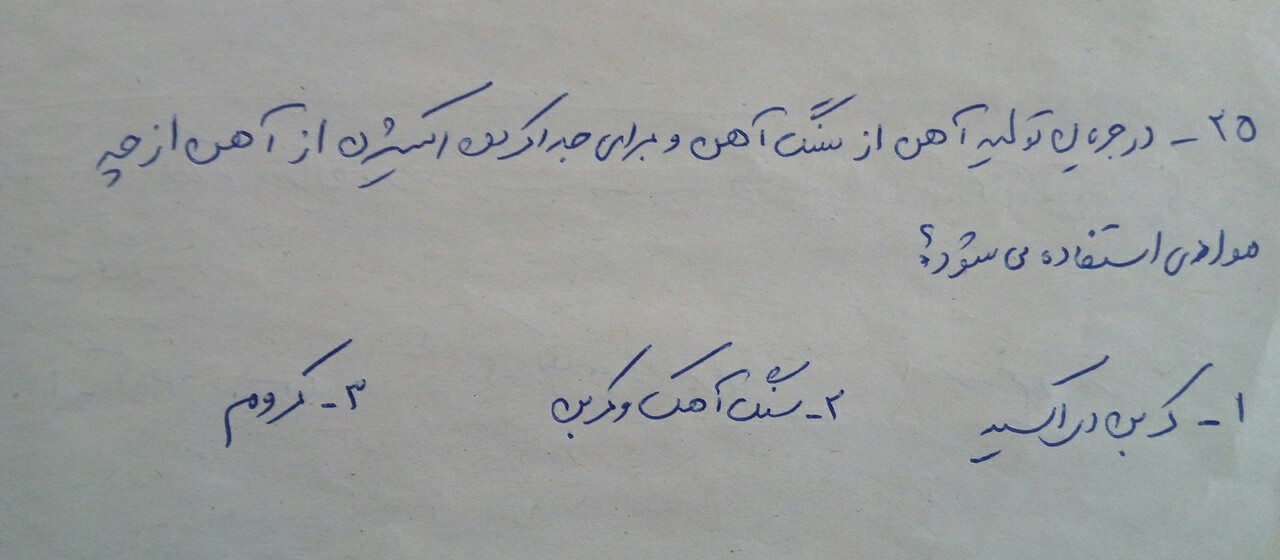 ۲۵ - در جریان تولید آهن از سنگ آهن و برای جدا کردن اکسیژن از آهن از چه
موادی استفاده می شود؟
۱- کربن دی اکسید ۲- سنگ آهک و کربن ۳- کروم